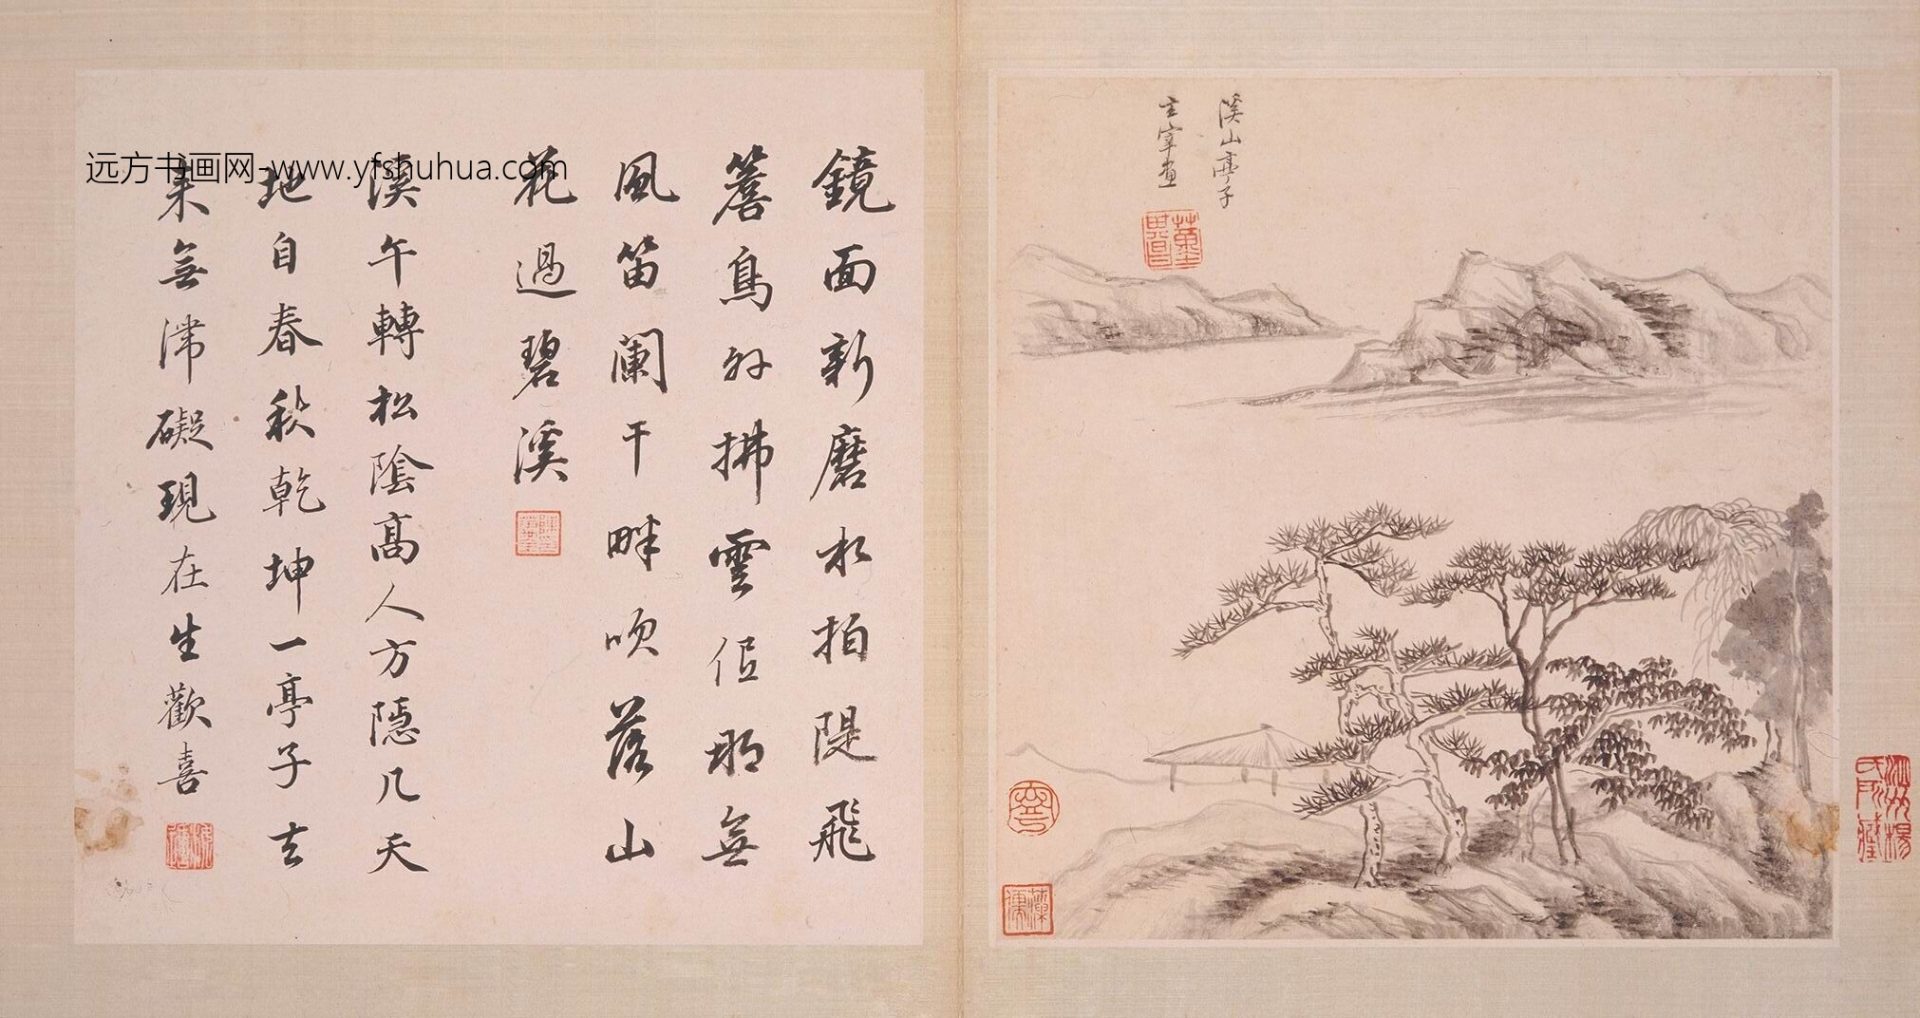 溪山亭子
玄宰畫
董其昌
鏡面新磨水拍隄飛
簷鳥外拂雲低那無
風笛闌干畔吹落山
花過碧溪
溪午轉松陰高人方隱几天
地自春秋乾坤一亭子去
來無滯礙現在生歡喜
远方书画网-www.yfshuhua.com